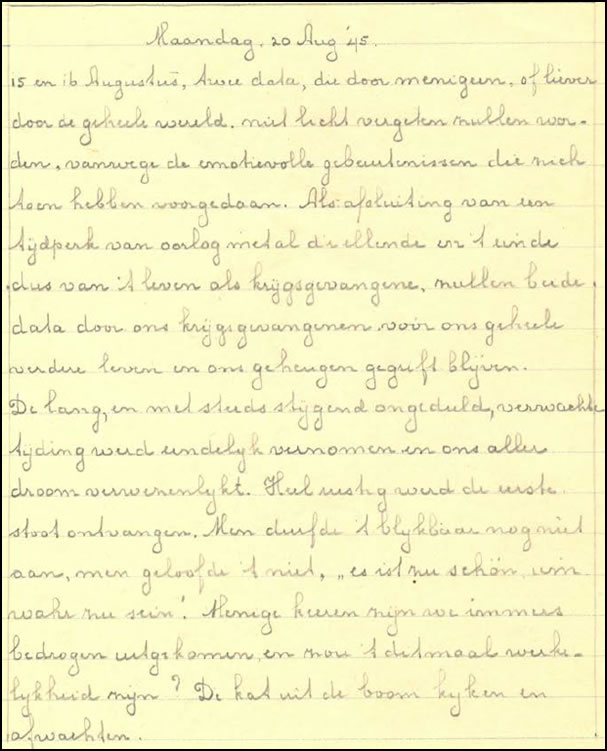 Maandag. 20 Aug '45.
15 en 16 Augustus, twee data, die door menigeen, of liever
door de geheele wereld. niet licht vergeten zullen wor-
den, vanwege de emotievolle gebeurtenissen die zich
toen hebben voorgedaan. Als afsluiting van een
tijdperk van oorlog met al die ellende en 't einde
dus van 't leven als krijgsgevangene, zullen beide
data door ons krijgsgevangenen vóór ons geheele
verdere leven in ons geheugen gegrift blijven.
De lang, en met steeds stijgend ongeduld, verwachte
tijding werd eindelijk vernomen en ons aller
droom verwezenlijkt. Heel rustig werd de eerste
stoot ontvangen. Men durfde 't blijkbaar nog niet
aan, men geloofde 't niet, „es ist zu schön, um
wahr zu sein'. Menige keeren zijn we immers
bedrogen uitgekomen, en zou 't ditmaal werke-
lijkheid zijn? De kat uit de boom kijken en
afwachten.